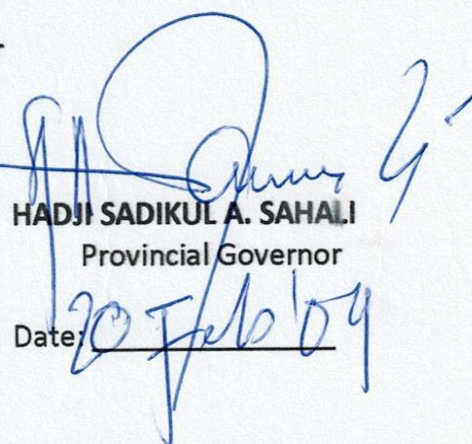 HADJI SADIKUL A. SAHALI
Provincial Governor
Date: 20 Feb '09